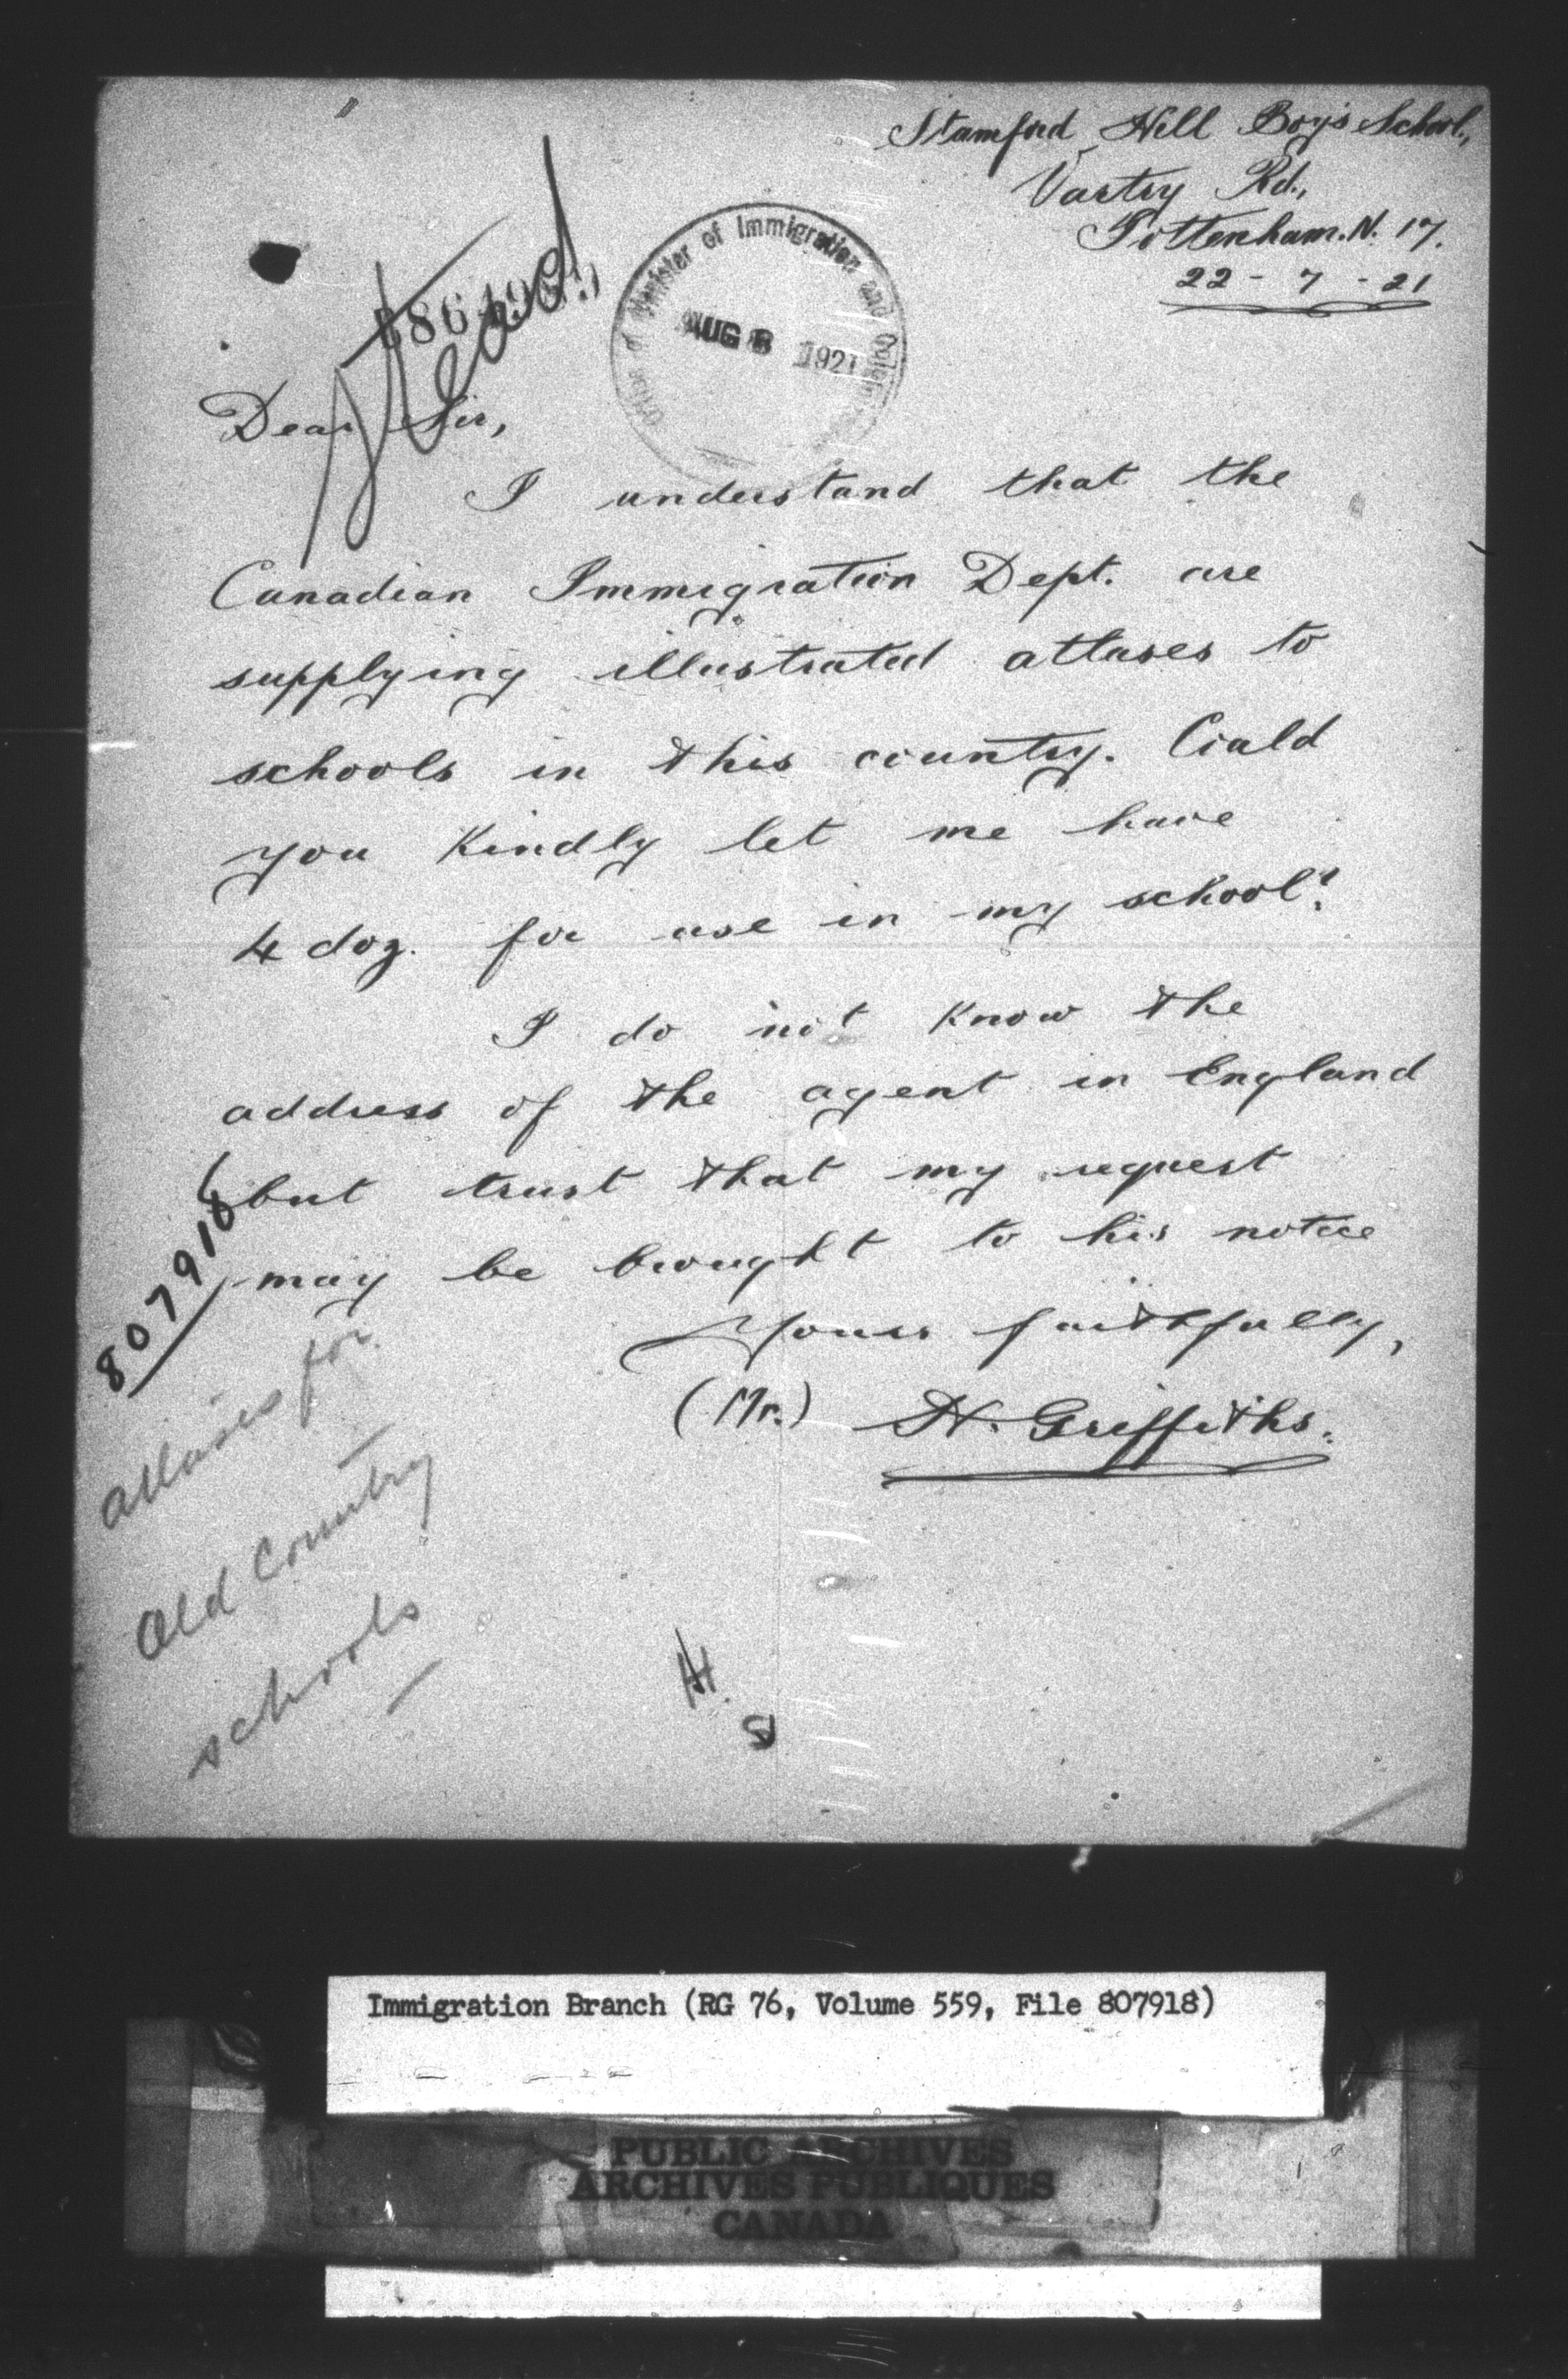 Stamford Hill Boys School,
Vartry Rd.,
Tottenham. N. 17.
22 - 7 - 21
Office of Minister of Immigration and
AUG 8 1921
Dear Sir,
I understand that the
Canadian Immigration Dept. are
supplying illustrated atlases to
schools in this country. Could
you kindly let me have
4 doz. for use in my school?
I do not know the
address of the agent in England
but trust that my request
may be brought to his notice
Yours faithfully,
(Mr.) H. Griffiths.
807918
atlases for
Old Country
schools
Immigration Branch (RG 76, Volume 559, File 807918)
PUBLIC ARCHIVES
ARCHIVES PUBLIQUES
CANADA